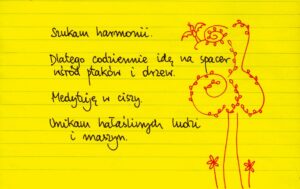 Szukam harmonii.
Dlatego codziennie idę na spacer
wśród ptaków i drzew.
Medytuję w ciszy.
Unikam hałaśliwych ludzi
i maszyn.